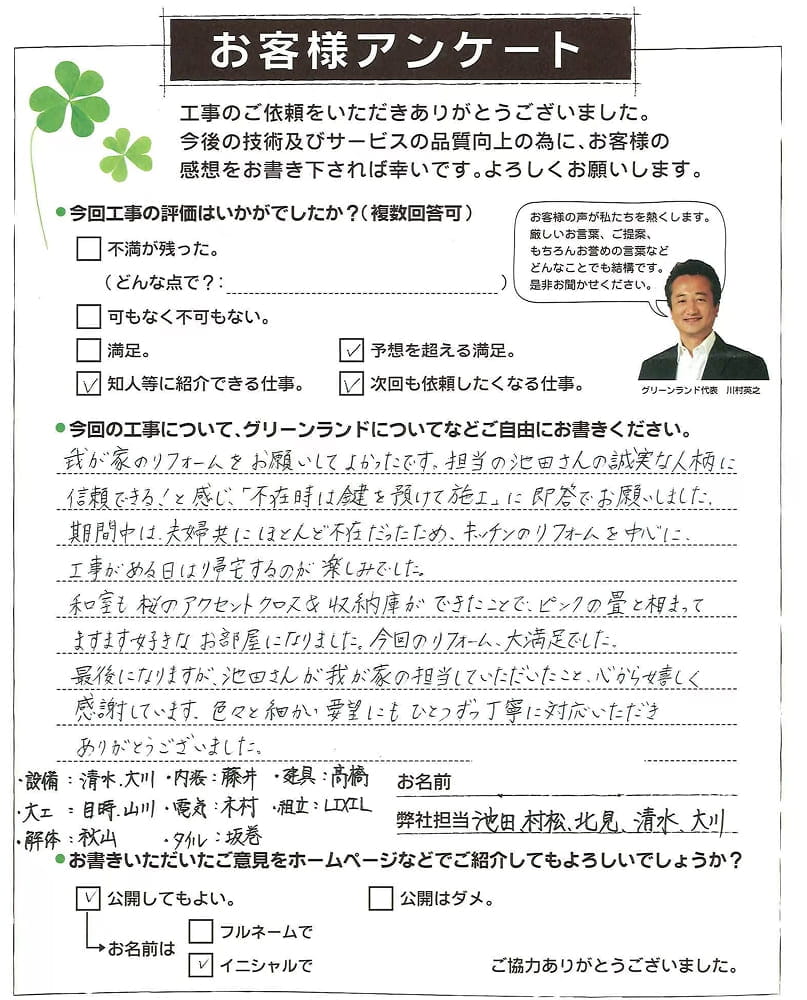 お客様アンケート
工事のご依頼をいただきありがとうございました。
今後の技術及びサービスの品質向上の為に、お客様の
感想をお書き下されば幸いです。よろしくお願いします。
●今回工事の評価はいかがでしたか?(複数回答可)
お客様の声が私たちを熱くします。
厳しいお言葉、ご提案、
もちろんお誉めの言葉など
どんなことでも結構です。
是非お聞かせください。
グリーンランド代表 川村英之
□不満が残った。
(どんな点で?: )
□可もなく不可もない。
□満足。 ☑予想を超える満足。
☑知人等に紹介できる仕事。 ☑次回も依頼したくなる仕事。
●今回の工事について、グリーンランドについてなどご自由にお書きください。
我が家のリフォームをお願いしてよかったです。担当の池田さんの誠実な人柄に
信頼できる!と感じ、「不在時は鍵を預けて施工」に即答でお願いしました。
期間中は、夫婦共にほとんど不在だったため、キッチンのリフォームを中心に、
工事がある日は帰宅するのが楽しみでした。
和室も桜のアクセントクロス&収納庫ができたことで、ピンクの畳と相まって
ますます好きなお部屋になりました。今回のリフォーム、大満足でした。
最後になりますが、池田さんが我が家の担当していただいたこと、心から嬉しく
感謝しています。色々と細かい要望にもひとつずつ丁寧に対応いただき
ありがとうございました。
・設備:清水、大川 ・内装:藤井 ・建具:髙橋
・大工:目時、山川 ・電気:木村 ・組立:LIXIL
・解体:秋山 ・タイル:坂巻
お名前
弊社担当 池田、村松、北見、清水、大川
●お書きいただいたご意見をホームページなどでご紹介してもよろしいでしょうか?
☑公開してもよい。 □公開はダメ。
お名前は □フルネームで
☑イニシャルで
ご協力ありがとうございました。